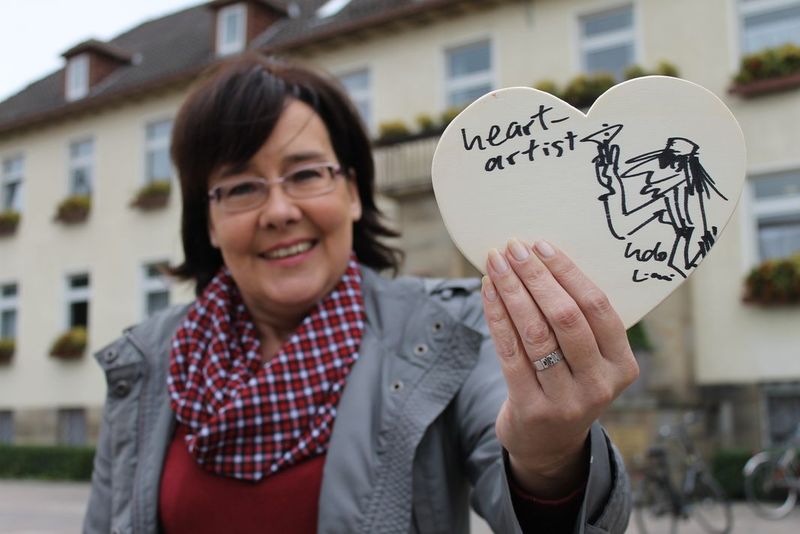 heart-
artist
Udo
Lindi